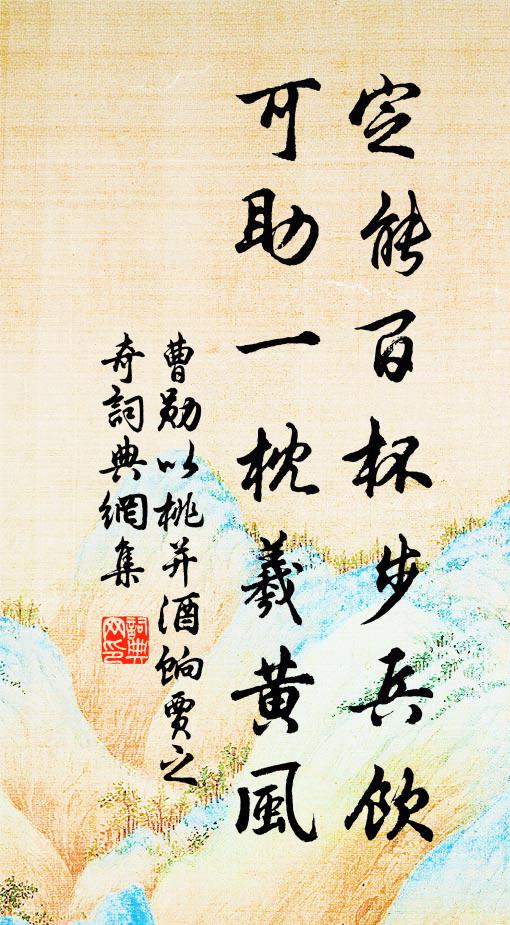 定能百杯步兵飲
可助一枕羲黃風
曹勛以桃并酒餉賈之
奇詞典網集
詞典
网印